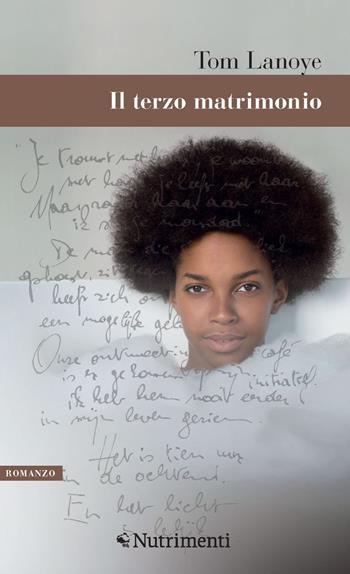 Tom Lanoye
Il terzo matrimonio
"Je trouwt met haar, je woont
met haar, je leeft met haar
Maar raak haar aan en
ik sla je morsdood."
De man die
heeft zich
een mogelijke
Onze ontmoeting café
is er gekomen op zijn initiatief.
ik heb hem nooit eerder
in mijn leven gezien.
Het is tien uur
in de ochtend.
En het licht
ROMANZO
Nutrimenti